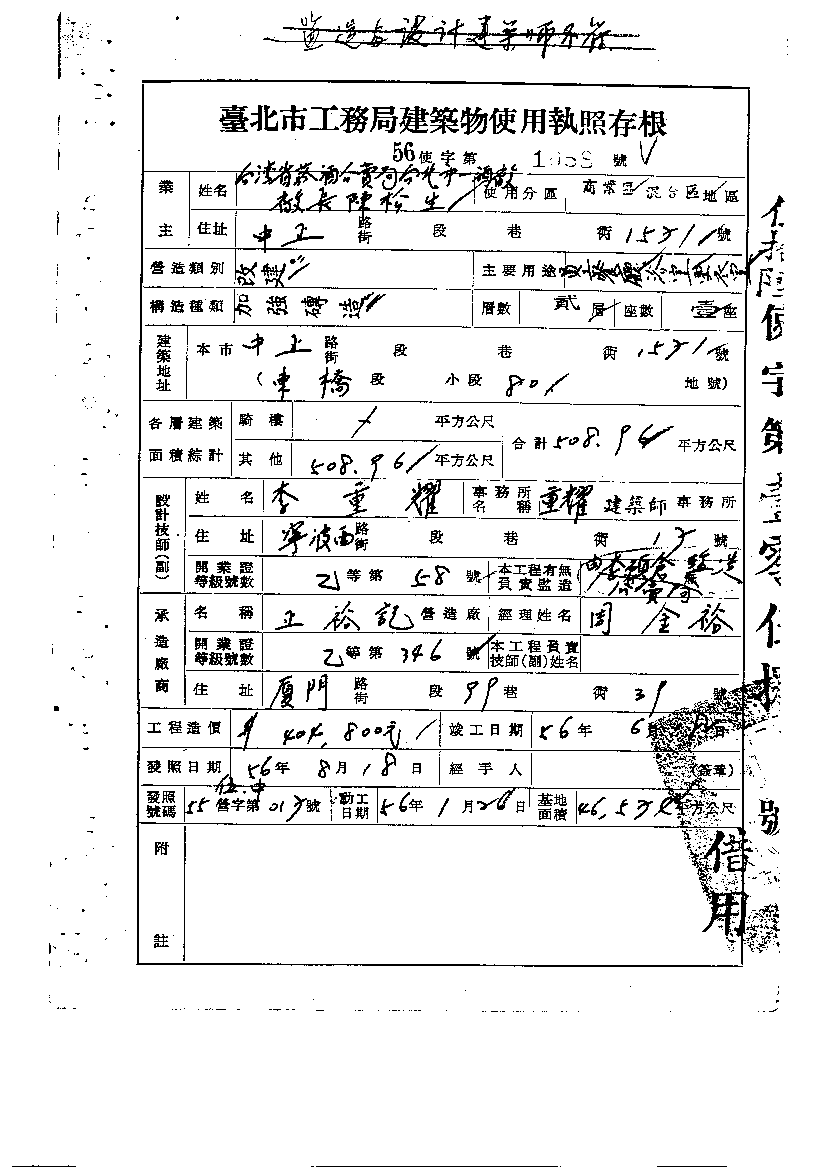 監造與設計建築師不符
臺北市工務局建築物使用執照存根
56使字第 1058 號
業主 姓名 台湾省菸酒公賣局台北市一酒廠 廠長陳 生 使用分區 商業區 混合區 地區
住址 中正 路街 段 巷 衖 號
營造類別 改建 主要用途
構造種類 加強磚造 層數 貳層 座數 壹座
建築地址 本市 中正 路街 段 巷 衖 號
(東橋段 小段 801 地號)
各層建築面積綜計 騎樓 平方公尺 合計508.96平方公尺
其他 508.96平方公尺
設計技師(副) 姓名 李重耀 事務所名稱 重耀 建築師事務所
住址 寧波西 路街 段 巷 衖 號
開業證等級號數 乙等第 58 號 本工程有無負責監造
承造廠商 名稱 正裕記 營造廠 經理姓名 周金裕
開業證等級號數 乙等第 346 號 本工程負責技師(副)姓名
住址 廈門 路街 段 99巷 衖 39 號
工程造價 404,800元 竣工日期 56年 6月 日
發照日期 56年 8月 18日 經手人 (簽章)
發照號碼 55營字第 號 動工日期 56年 1月 26日 基地面積 平方公尺
附註
伍拾陸使字第壹零伍捌號
借用